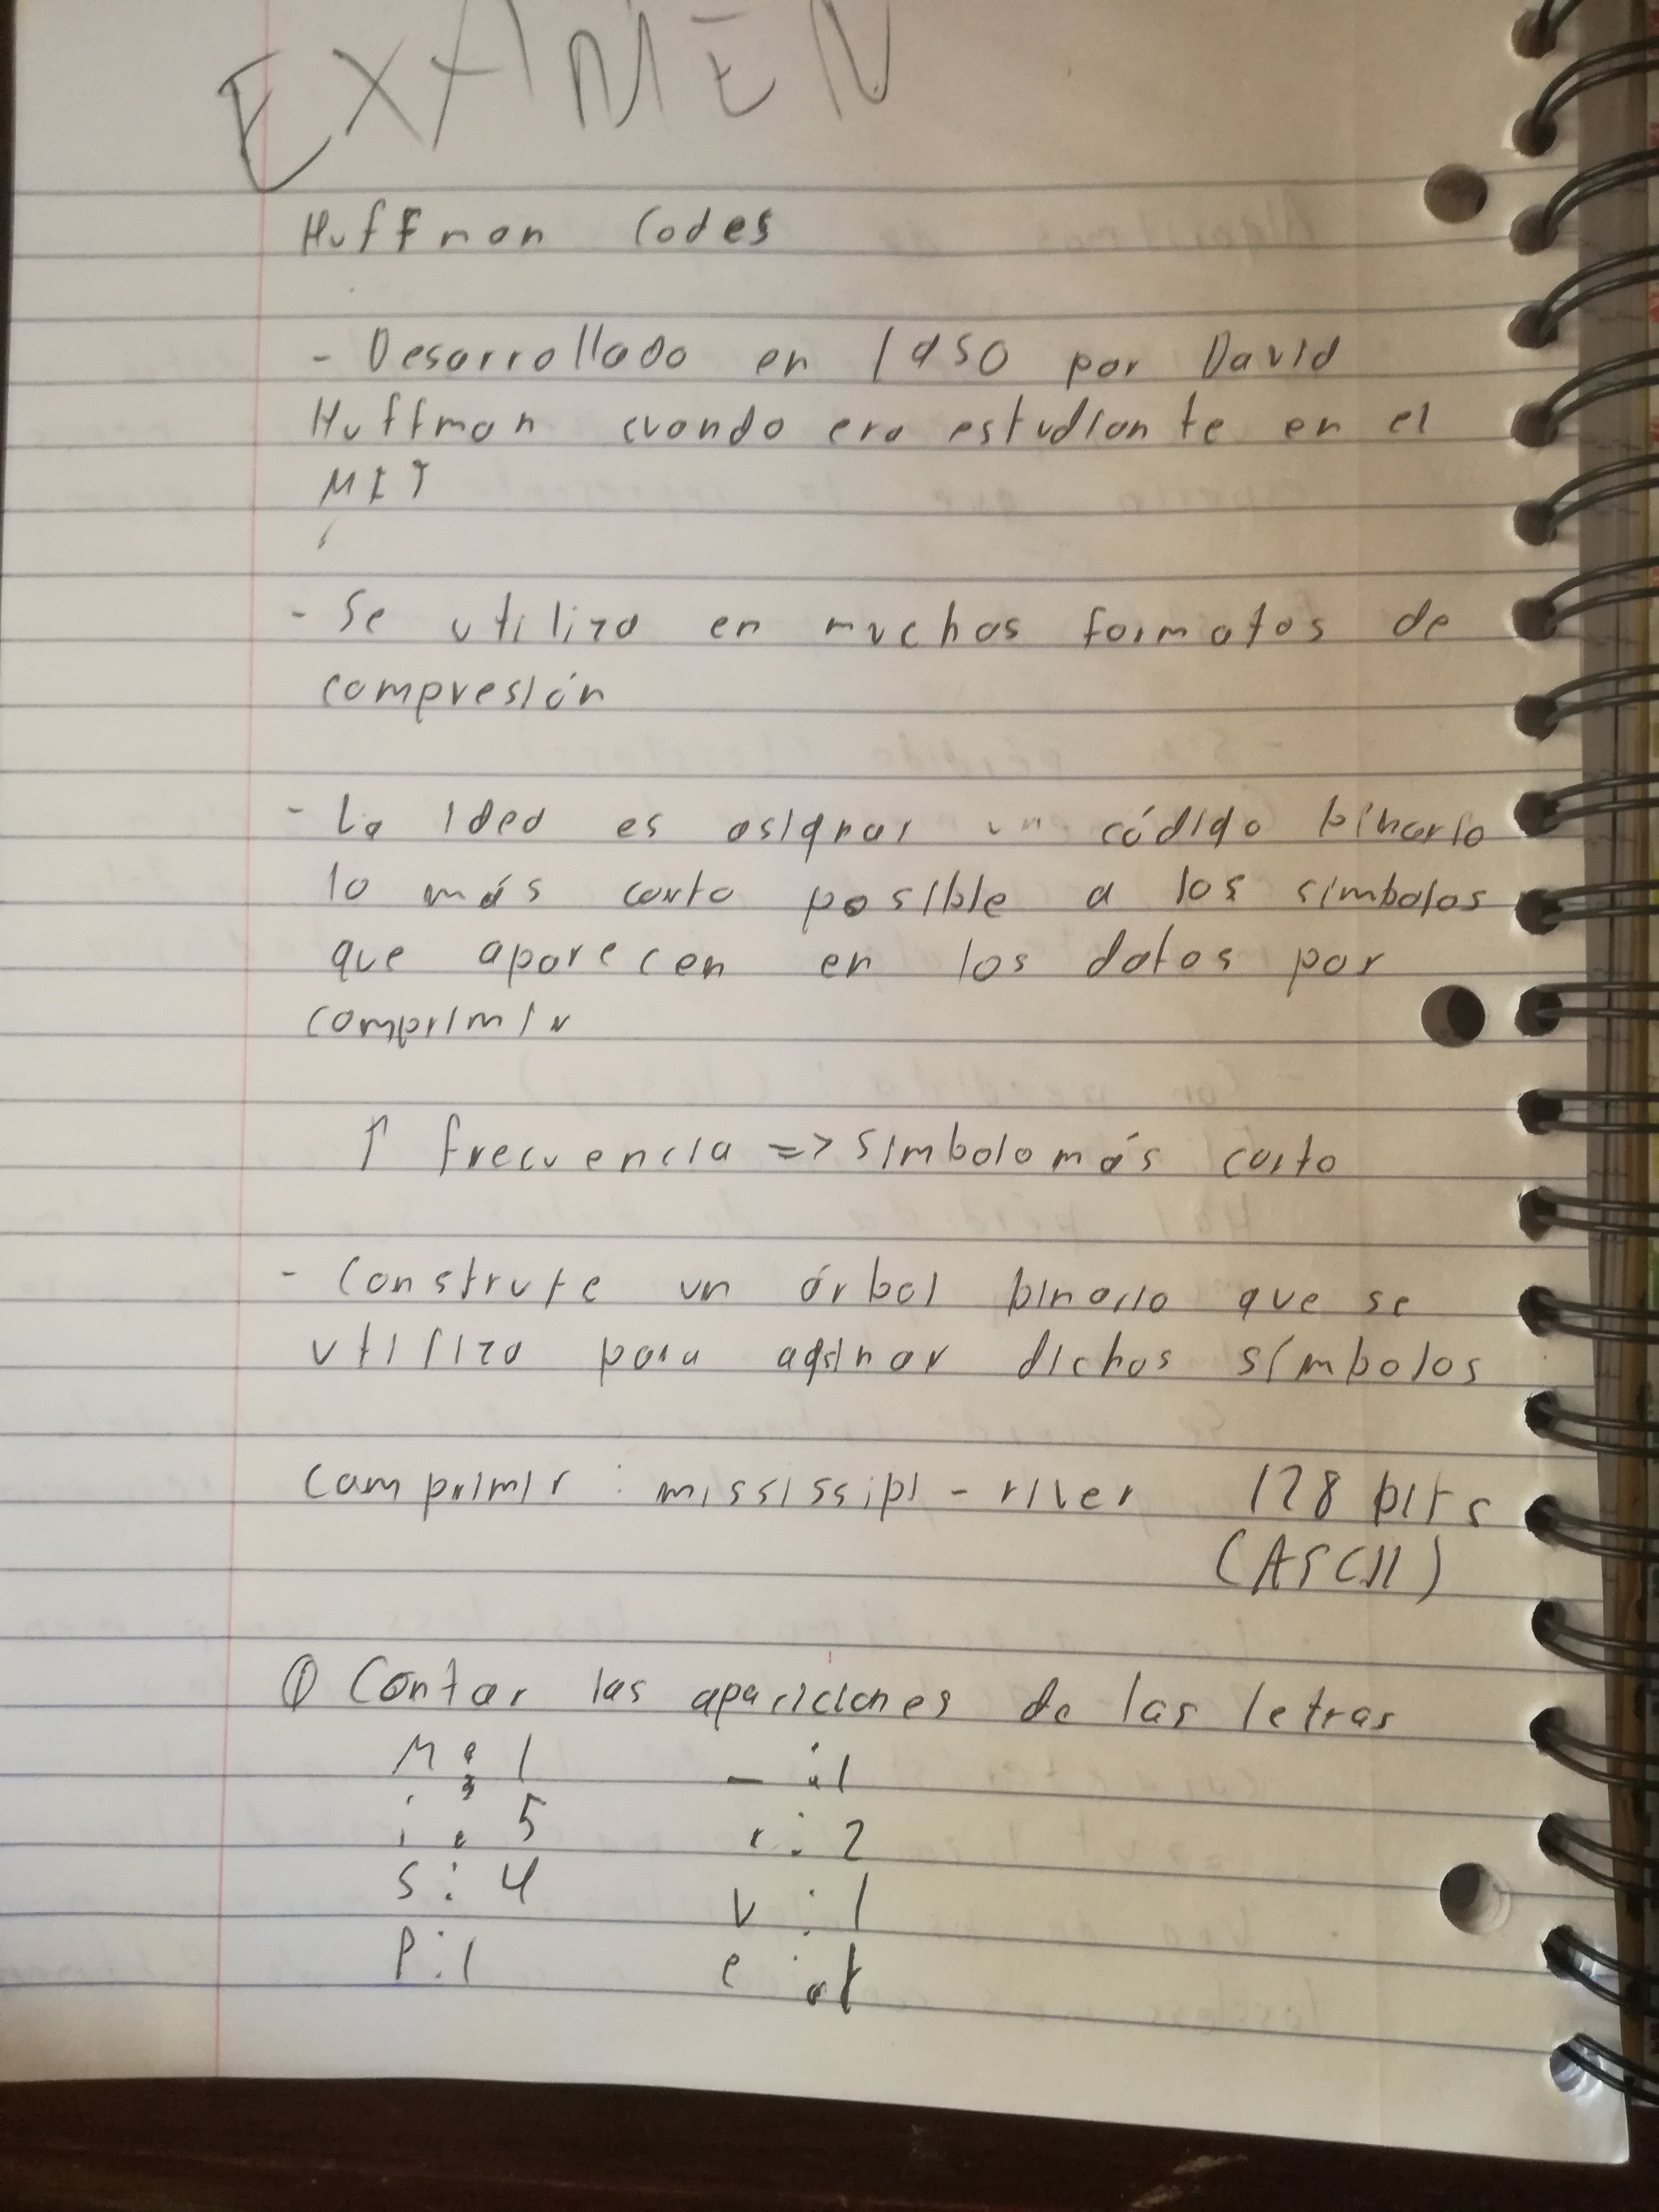 EXAMEN
Huffman Codes
- Desarrollado en 1950 por David
Huffman cuando era estudiante en el
MIT
- Se utiliza en muchos formatos de
compresión
- La idea es asignar un códido binario
lo más corto posible a los símbolos
que aparecen en los datos por
comprimir
↑ frecuencia => símbolo más corto
- Construye un árbol binario que se
utiliza para agsinar dichos símbolos
Comprimir : mississipi - river 128 bits
(ASCII)
① Contar las apariciones de las letras
M : 1 - : 1
i : 5 r : 2
s : 4 v : 1
P : 1 e : 1